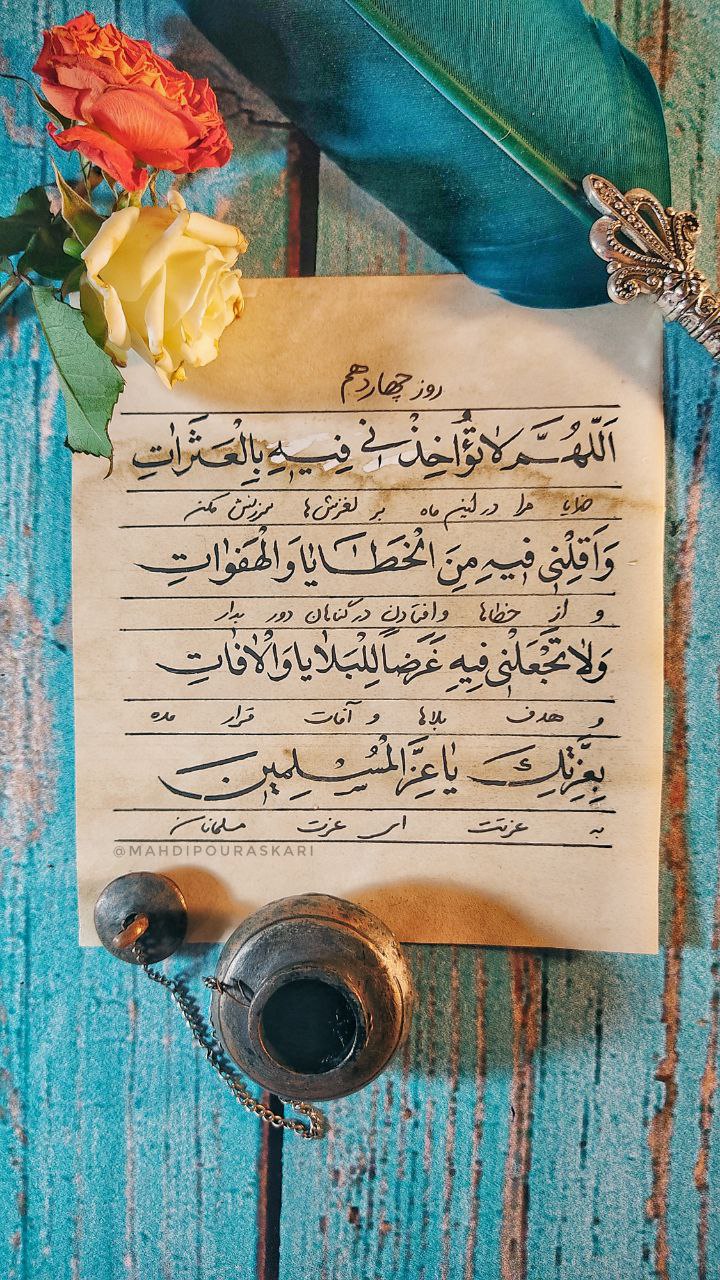 روز چهاردهم
اَللّهُمَّ لاتُؤاخِذْنی فِیهِ بِالْعَثَراتِ
خدایا مرا در این ماه بر لغزش‌ها سرزنش مکن
وَاَقِلْنی فیهِ مِنَ الْخَطایا وَالْهَفَواتِ
و از خطاها و افتادن در گناهان دور بدار
وَلاتَجْعَلْنی فِیهِ غَرَضاً لِلْبَلایا وَالْافاتِ
و هدف بلاها و آفات قرار مده
بِعِزَّتِکَ یاعِزَّالْمُسْلِمینَ
به عزتت ای عزت مسلمانان
@MAHDIPOURASKARI